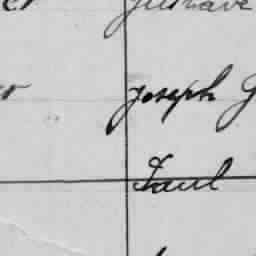 Gustave
Joseph G
Paul